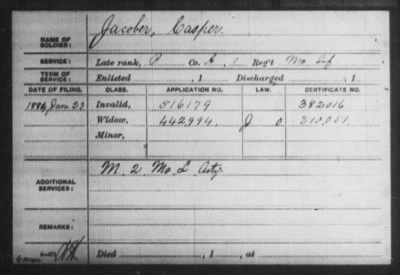 NAME OF SOLDIER: Jacober, Casper.
SERVICE: Late rank, P Co. A, 1 Reg't Mo. Inf
TERM OF SERVICE: Enlisted , 1 Discharged , 1 .
DATE OF FILING. CLASS. APPLICATION NO. LAW. CERTIFICATE NO.
1886 Invalid, 516179 382016
Widow, 442994. J 310,051.
Minor,
ADDITIONAL SERVICES: M. 2 Mo L Arty.
REMARKS:
Died , 1 , at